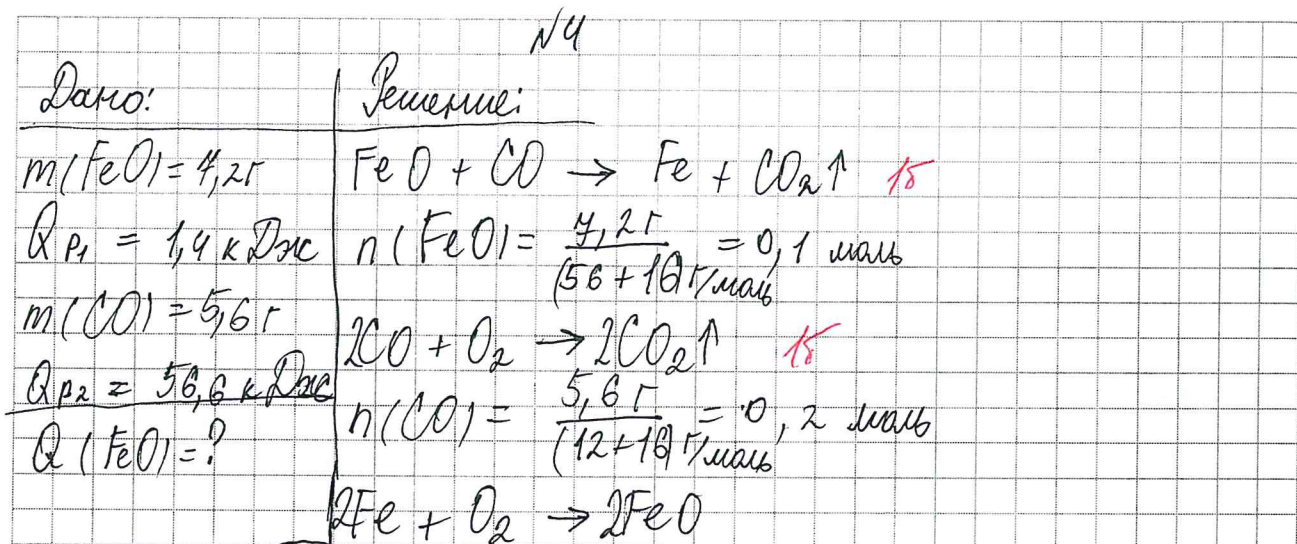 №4
Дано:
m(FeO)=7,2г
Qр₁ = 1,4 кДж
m(CO)=5,6г
Qр₂ = 56,6 кДж
Q(FeO)=?
Решение:
FeO + CO → Fe + CO₂↑ 1б
n(FeO)= 7,2г / (56+16)г/моль = 0,1 моль
2CO + O₂ → 2CO₂↑ 1б
n(CO)= 5,6г / (12+16)г/моль = 0,2 моль
2Fe + O₂ → 2FeO